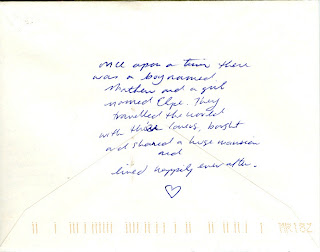 once upon a time there
was a boy named
Matthew and a girl
named Elpe. They
travelled the world
with their loves, bought
and shared a huge mansion
and
lived happily ever after.